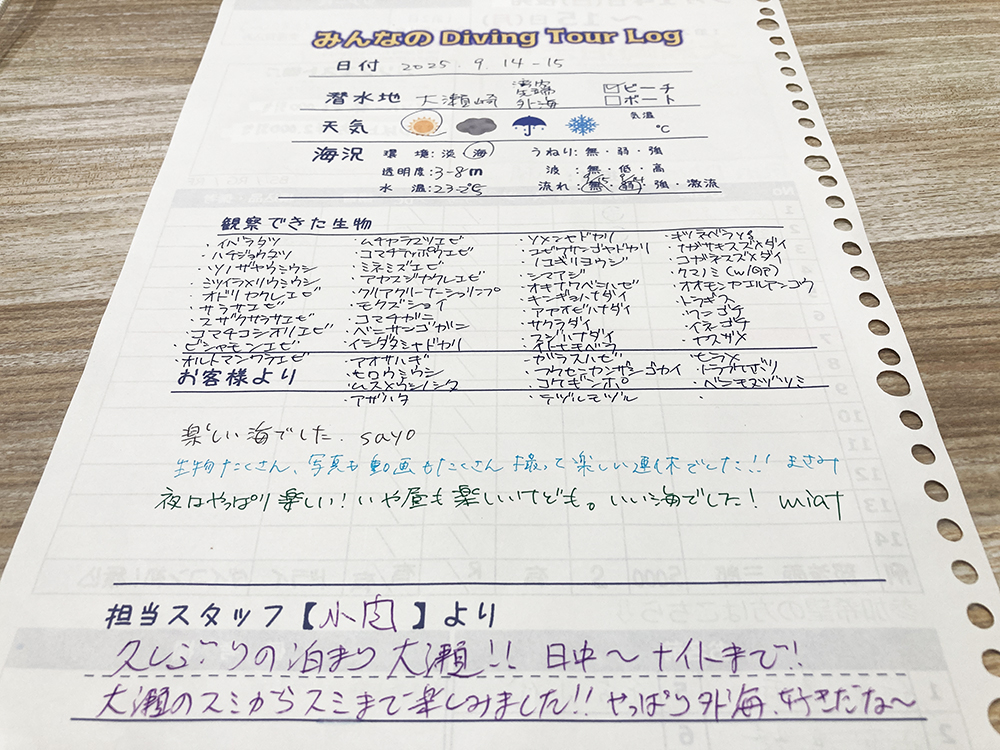 みんなの Diving Tour Log
日付 2025.9.14-15
潜水地 大瀬崎 湾内 先端 外海 ☑ビーチ □ボート
天気 気温 ℃
海況 環境:淡・海 うねり:無・弱・強
透明度:3-8m 波:無・低・高
水温:23-25℃ 流れ:無・弱・強・激流
観察できた生物
・イバラタツ ・ムチカラマツエビ ・ソメンヤドカリ ・キツネベラyg
・ハチジョウタツ ・コマチテッポウエビ ・ユビワサンゴヤドカリ ・ナガサキスズメダイ
・ツノザヤウミウシ ・ミネミズエビ ・ノコギリヨウジ ・コガネスズメダイ
・ミツイラメリウミウシ ・アヤスジオクレエビ ・シマアジ ・クマノミ
・オドリカクレエビ ・クリアクリーナーシュリンプ ・オキナワベニハゼ ・オオモンカエルアンコウ
・サラサエビ ・モクズショイ ・キンギョハナダイ ・トラギス
・スザクサラサエビ ・コマチガニ ・アカオビハナダイ ・ワニゴチ
・コマチコシオリエビ ・ベニサンゴガニ ・サクラダイ ・イネゴチ
・ビシャモンエビ ・イシダタミヤドカリ ・スジハナダイ ・ヤスガメ
・オルトマンワラエビ ・アオサハギ ・イトヒキベラ
・ヒロウミウシ ・ガラスハゼ ・ヒラメ
お客様より ・ムスメウシノシタ ・フウセンカンザシゴカイ ・トラウツボ
・アザハタ ・コケギンポ ・ベニキヌヅツミ
・テヅルモヅル
楽しい海でした. sayo
生物たくさん、写真も動画もたくさん撮って楽しい連休でした!! まさみ
夜はやっぱり楽しい! いや昼も楽しいけども。いい海でした!
担当スタッフ【小肉】より
久しぶりの泊まり大瀬!! 日中~ナイトまで!
大瀬のスミからスミまで楽しみました!! やっぱり外海、好きだな~